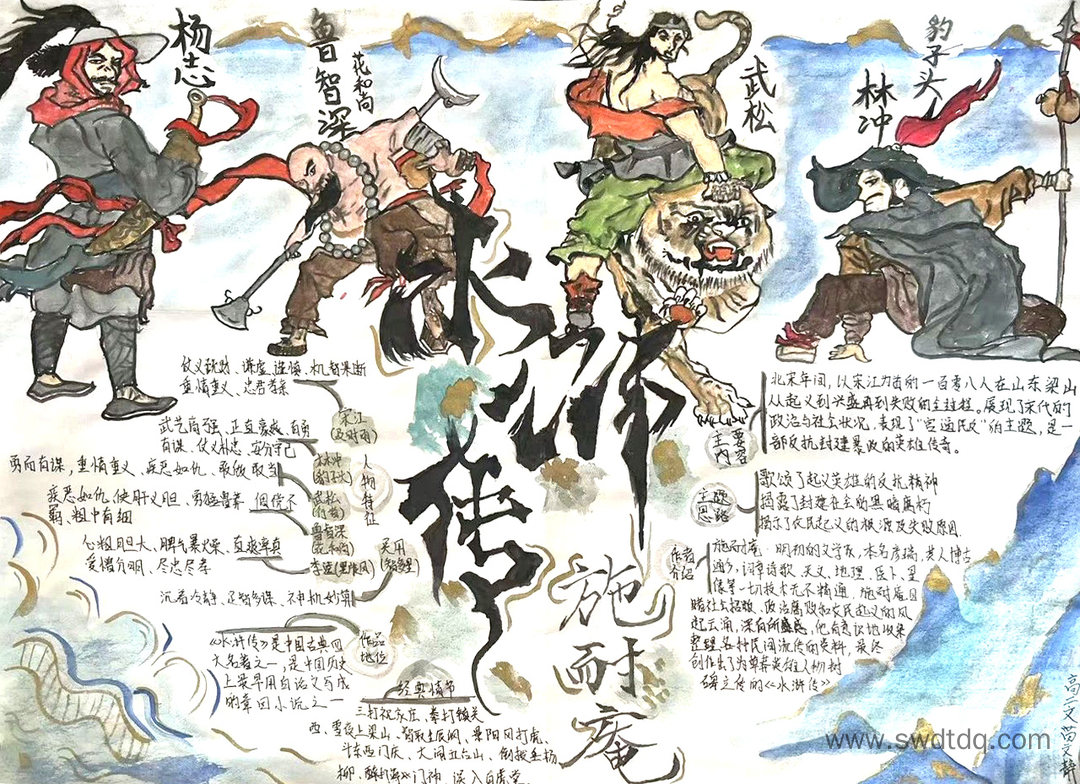 杨志
鲁智深
花和尚
武松
豹子头
林冲
水浒传
施耐庵
仗义疏财、谦虚谨慎、机智果断
重情重义、忠君孝亲
宋江
(及时雨)
武艺高强、正直豪放、有勇
有谋、仗义
林冲
(豹子头)
勇而有谋，重情重义、疾恶如仇、敢做敢当
武松
(行者)
疾恶如仇、侠肝义胆、勇猛
粗中有细
鲁智深
(花和尚)
心粗胆大、脾气暴燥、直爽率真
爱憎分明、尽忠尽孝
李逵(黑旋风)
沉着冷静、足智多谋、神机妙算
吴用
(智多星)
人物特征
《水浒传》是中国古典四
大名著之一，是中国历史
上最早用白话文写成
的章回小说之一
作品
地位
经典情节
三打祝家庄、拳打镇关
西、雪夜上梁山、智取生辰纲、景阳冈打虎、
斗杀西门庆、大闹五台山、倒拔垂杨
柳、醉打蒋门神、误入白虎堂
主要
内容
北宋年间，以宋江为首的一百零八人在山东梁山
从起义到兴盛再到失败的全过程。展现了宋代的
政治与社会状况，表现了“官逼民反”的主题，是一
部反抗封建暴政的英雄传奇。
主题
思路
歌颂了起义英雄的反抗精神
揭露了封建社会的黑暗腐朽
揭示了农民起义的根源及失败原因
作者
介绍
施耐庵：明初的文学家，本名彦端，其人博古
通今，词章诗歌、天文、地理、医卜、星
像等一切技术无不精通，施耐庵目
睹社会
政治腐败和农民起义的风
起云涌，深有所感，他有意识地收集
整理各种民间流传的资料，最终
创作出了为草莽英雄人物树
碑立传的《水浒传》
高二
www.swdtdq.com